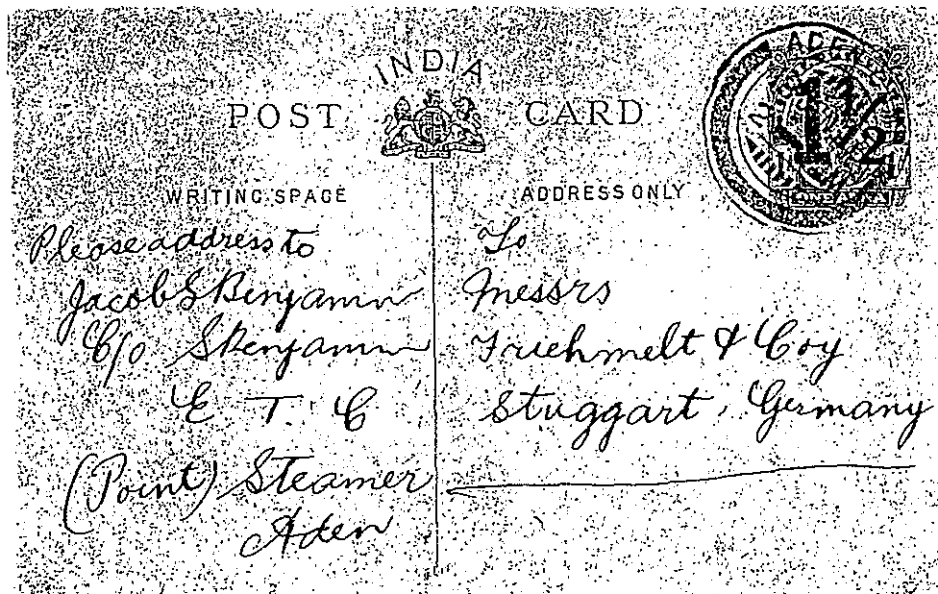 INDIA
POST CARD
WRITING SPACE
Please address to
Jacob S Benjamin
C/o S Benjamin
E. T. C
(Point) Steamer
Aden
ADDRESS ONLY
To
Messrs
Truehmelt & Coy
Stuggart, Germany
ADEN
1 1/2